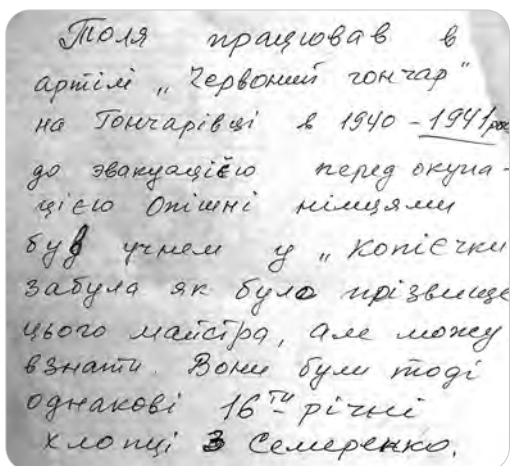 Толя працював в
артілі „Червоний гончар"
на Гончарівці в 1940 - 1941 рос
до эвакуацією перед окупа-
цією Опішні німцями
був учнем у „Копієчки
забула як було прізвище
цього майстра, але можу
взнати. Вони були тоді
однакові 16ти річні
хлопці з Семеренко.